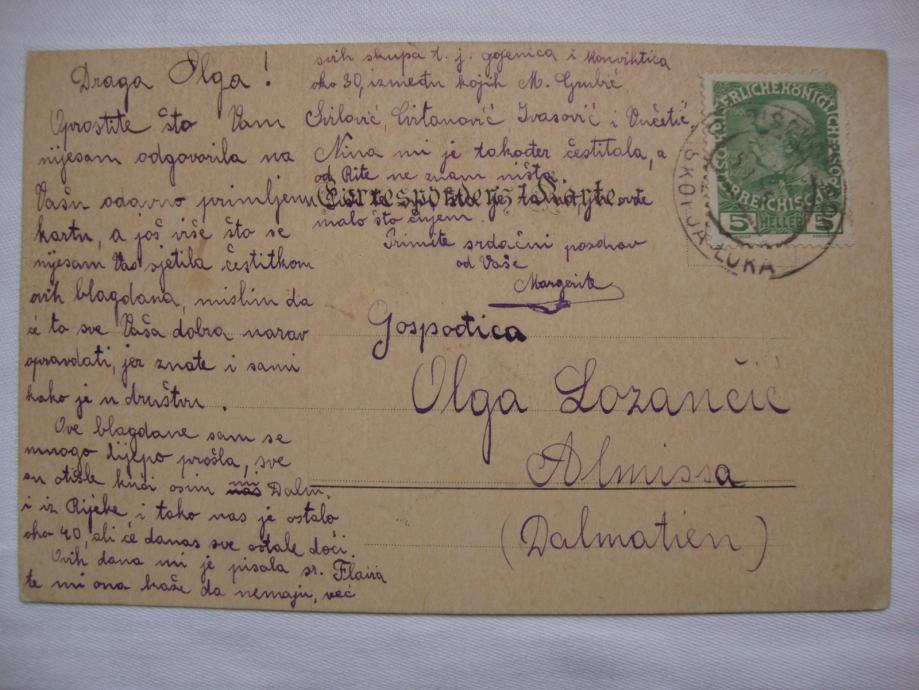 Draga Olga!
Oprostite što Vam
nijesam odgovorila na
Vašu odavno primljenu
kartu, a još više što se
nijesam Vas sjetila čestitkom
ovih blagdana, mislim da
će to sve Vaša dobra narav
opravdati, jer znate i sami
kako je u društvu.
Ove blagdane sam se
mnogo lijepo prošla, sve
su otišle kući osim Dalm.
i iz Rijeke i tako nas je ostalo
oko 40, ali će danas sve ostale doći.
Ovih dana mi je pisala sr. Flavia
te mi ona kaže da nemaju, već
svih skupa t. j. gojenica i konviktica
oko 30, između kojih M. Grubić
Sirlović, Cvitanović Ivasović i Vučetić,
Nina mi je također čestitala, a
od Rite ne znam ništa.
malo što čujem.
Primite srdačni pozdrav
od Vaše
Margerite
Correspondenz-Karte
KAISERLICHE KÖNIGLICHE POST
5 HELLER 5
ÖSTERREICHISCHE
ŠKOFJA LOKA
Gospođica
Olga Lozančić
Almissa
(Dalmatien)